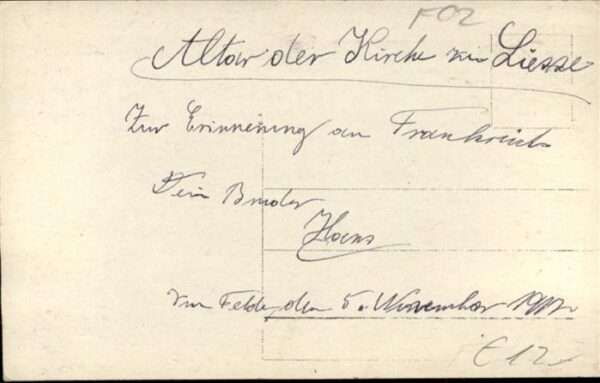 F02
Altar der Kirche in Liesse
Zur Erinnerung an Frankreich
Dein Bruder
Hans
Im Felde, den 5. November 1917.
E12